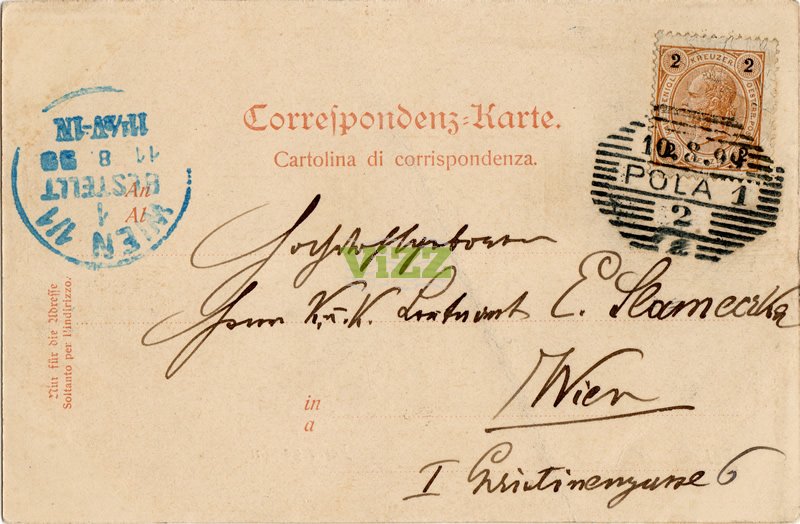 Correſpondenz-Karte.
Cartolina di corrispondenza.
2 KREUZER 2
10. 8. 98
POLA 1
2
WIEN 1/1
1
BESTELLT
11. 8. 98
An
Al
Hochwohlgeboren
Herrn K. u. K. Leutnant E. Slameczka
Wien
I Christinengasse 6
in
a
Nur für die Adreſſe
Soltanto per l'indirizzo.
ViZZ